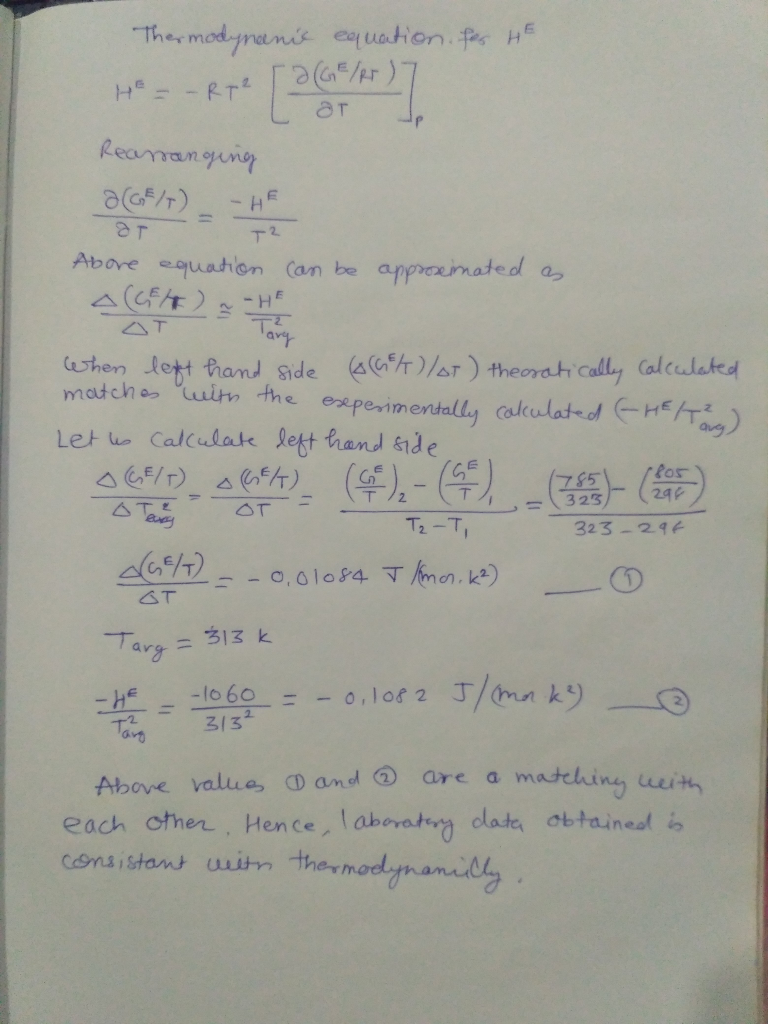 Thermodynamic equation. for H^E
H^E = - RT² [∂(G^E/RT) / ∂T]_P
Rearranging
∂(G^E/T) / ∂T = -H^E / T²
Above equation can be approximated as
Δ(G^E/T) / ΔT ≅ -H^E / T²_avg
When left hand side (Δ(G^E/T)/ΔT) theoratically calculated
matches with the experimentally calculated (-H^E/T²_avg)
Let us calculate left hand side
Δ(G^E/T) / ΔT²_avg = Δ(G^E/T) / ΔT = ((G^E/T)₂ - (G^E/T)₁) / (T₂-T₁) = ((785/323) - (805/298)) / (323-298)
Δ(G^E/T) / ΔT = - 0,01084 J/(mol.k²) — ①
T_avg = 313 k
-H^E / T²_avg = -1060 / 313² = - 0,1082 J/(mol k²) — ②
Above values ① and ② are a matching with
each other. Hence, laboratary data obtained is
consistant with thermodynamiclly.